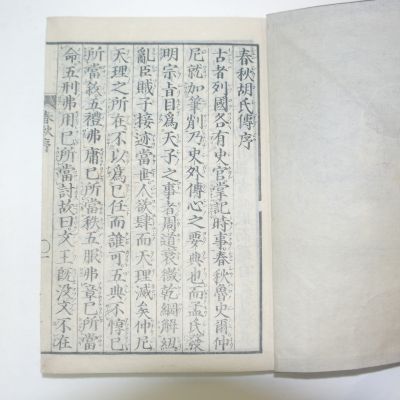 春秋胡氏傳序
古者列國各有史官掌記時事春秋魯史爾仲
尼就加筆削乃史外傳心之要典也而孟氏發
明宗旨目爲天子之事者周道衰微乾綱解紐
亂臣賊子接迹當世人欲肆而天理滅矣仲尼
天理之所在不以爲己任而誰可五典不惇己
所當敘五禮弗庸己所當秩五服弗章己所當
命五刑弗用己所當討故曰文王既没文不在
春秋序